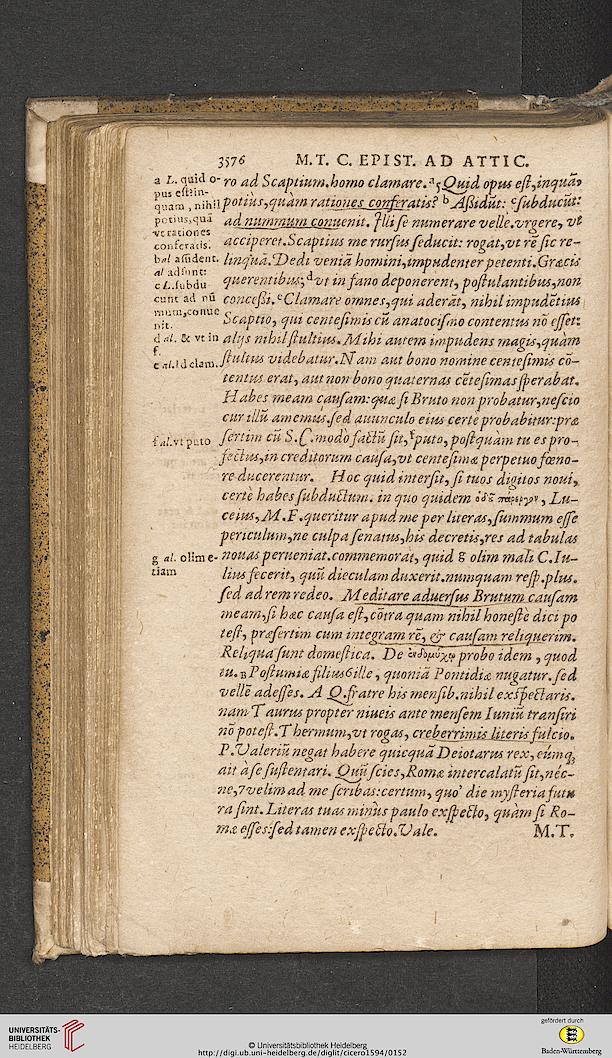 3576 M. T. C. EPIST. AD ATTIC.
a L. quid o-
pus est: in-
quam, nihil
potius, quā
vt rationes
conferatis.
b al assident.
al adsunt:
c L. subdu
cunt ad nū
mum, conue
nit.
d al. & vt in
f.
e al. Id clam.
f al. vt puto
g al. olim e-
tiam
ro ad Scaptium. homo clamare. ᵃ5Quid opus est, inquā,
potiùs, quàm rationes conferatis? ᵇ Aßidūt: ᶜsubducūt:
ad nummum conuenit. Illi se numerare velle. vrgere, vt
acciperet. Scaptius me rursus seducit: rogat, vt rē sic re-
linquā. Dedi veniā homini, impudenter petenti. Græcis
querentibus; ᵈvt in fano deponerent, postulantibus, non
conceßi. ᵉClamare omnes, qui aderāt, nihil impudētius
Scaptio, qui centesimis cū anatocismo contentus nō esset:
alijs nihil stultius. Mihi autem impudens magis, quàm
stultus videbatur. Nam aut bono nomine centesimis cō-
tentus erat, aut non bono quaternas cētesimas sperabat.
Habes meam causam: quæ si Bruto non probatur, nescio
cur illū amemus. sed auunculo eius certè probabitur: præ
sertim cū S. C. modò factū sit, ᶠputo, postquàm tu es pro-
fectus, in creditorum causa, vt centesimæ perpetuo fœno-
re ducerentur. Hoc quid intersit, si tuos digitos noui,
certè habes subductum. in quo quidem ὁδȣ̃ πάρεργον, Lu-
ceius, M. F. queritur apud me per literas, summum esse
periculum, ne culpa senatus, his decretis, res ad tabulas
nouas perueniat. commemorat, quid ᵍ olim mali C. Iu-
lius fecerit, quū dieculam duxerit. numquam resp. plus.
sed ad rem redeo. Meditare aduersus Brutum causam
meam, si hæc causa est, cōtra quam nihil honestè dici po
test, præsertim cum integram rē, & causam reliquerim.
Reliqua sunt domestica. De ἐνδομύχῳ probo idem, quod
tu. B Postumiæ filius6 ille, quoniā Pontidiæ nugatur. sed
vellē adesses. A Q. fratre his mensib. nihil exspectaris.
nam Taurus propter niueis ante mensem Iuniū transiri
nō potest. Thermum, vt rogas, creberrimis literis fulcio.
P. Valeriū negat habere quicquā Deiotarus rex, eúmq;
ait à se sustentari. Quū scies, Romæ intercalatū sit, néc-
ne, 7velim ad me scribas: certum, quo die mysteria futu
ra sint. Literas tuas minùs paulo exspecto, quàm si Ro-
mæ esses: sed tamen exspecto. Vale. M. T.
UNIVERSITÄTS-
BIBLIOTHEK
HEIDELBERG
© Universitätsbibliothek Heidelberg
http://digi.ub.uni-heidelberg.de/diglit/cicero1594/0152
gefördert durch
Baden-Württemberg